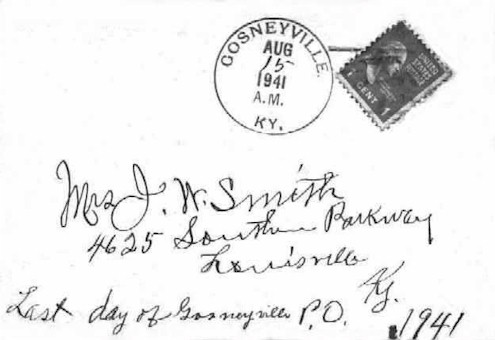 GOSNEYVILLE.
AUG
15
1941
A.M.
KY.
UNITED
STATES
POSTAGE
1 CENT 1
Mrs J. W. Smith
4625 Southern Parkway
Louisville
Ky.
Last day of Gosneyville P.O.
1941